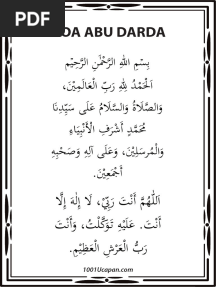 PDF
DOA ABU DARDA
بِسْمِ اللهِ الرَّحْمٰنِ الرَّحِيْمِ
اَلْحَمْدُ لِلهِ رَبِّ الْعَالَمِيْنَ،
وَالصَّلَاةُ وَالسَّلَامُ عَلَى سَيِّدِنَا
مُحَمَّدٍ أَشْرَفِ الْأَنْبِيَاءِ
وَالْمُرْسَلِيْنَ، وَعَلَى آلِهِ وَصَحْبِهِ
أَجْمَعِيْنَ.
اَللّٰهُمَّ أَنْتَ رَبِّيْ، لَا إِلٰهَ إِلَّا
أَنْتَ. عَلَيْهِ تَوَكَّلْتُ، وَأَنْتَ
رَبُّ الْعَرْشِ الْعَظِيْمِ.
1001Ucapan.com